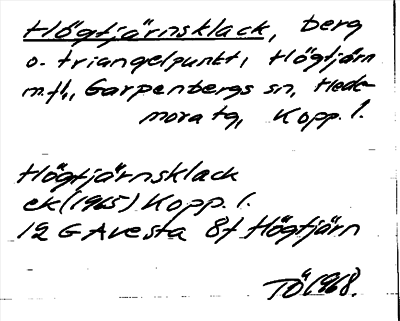 Högtjärnsklack, berg
o. triangelpunkt, Högtjärn
m.fl., Garpenbergs sn, Hede-
mora tg, Kopp. l.
Högtjärnsklack
ek (1965) Kopp. l.
12 G Avesta 8f Högtjärn
TÖ 1968.